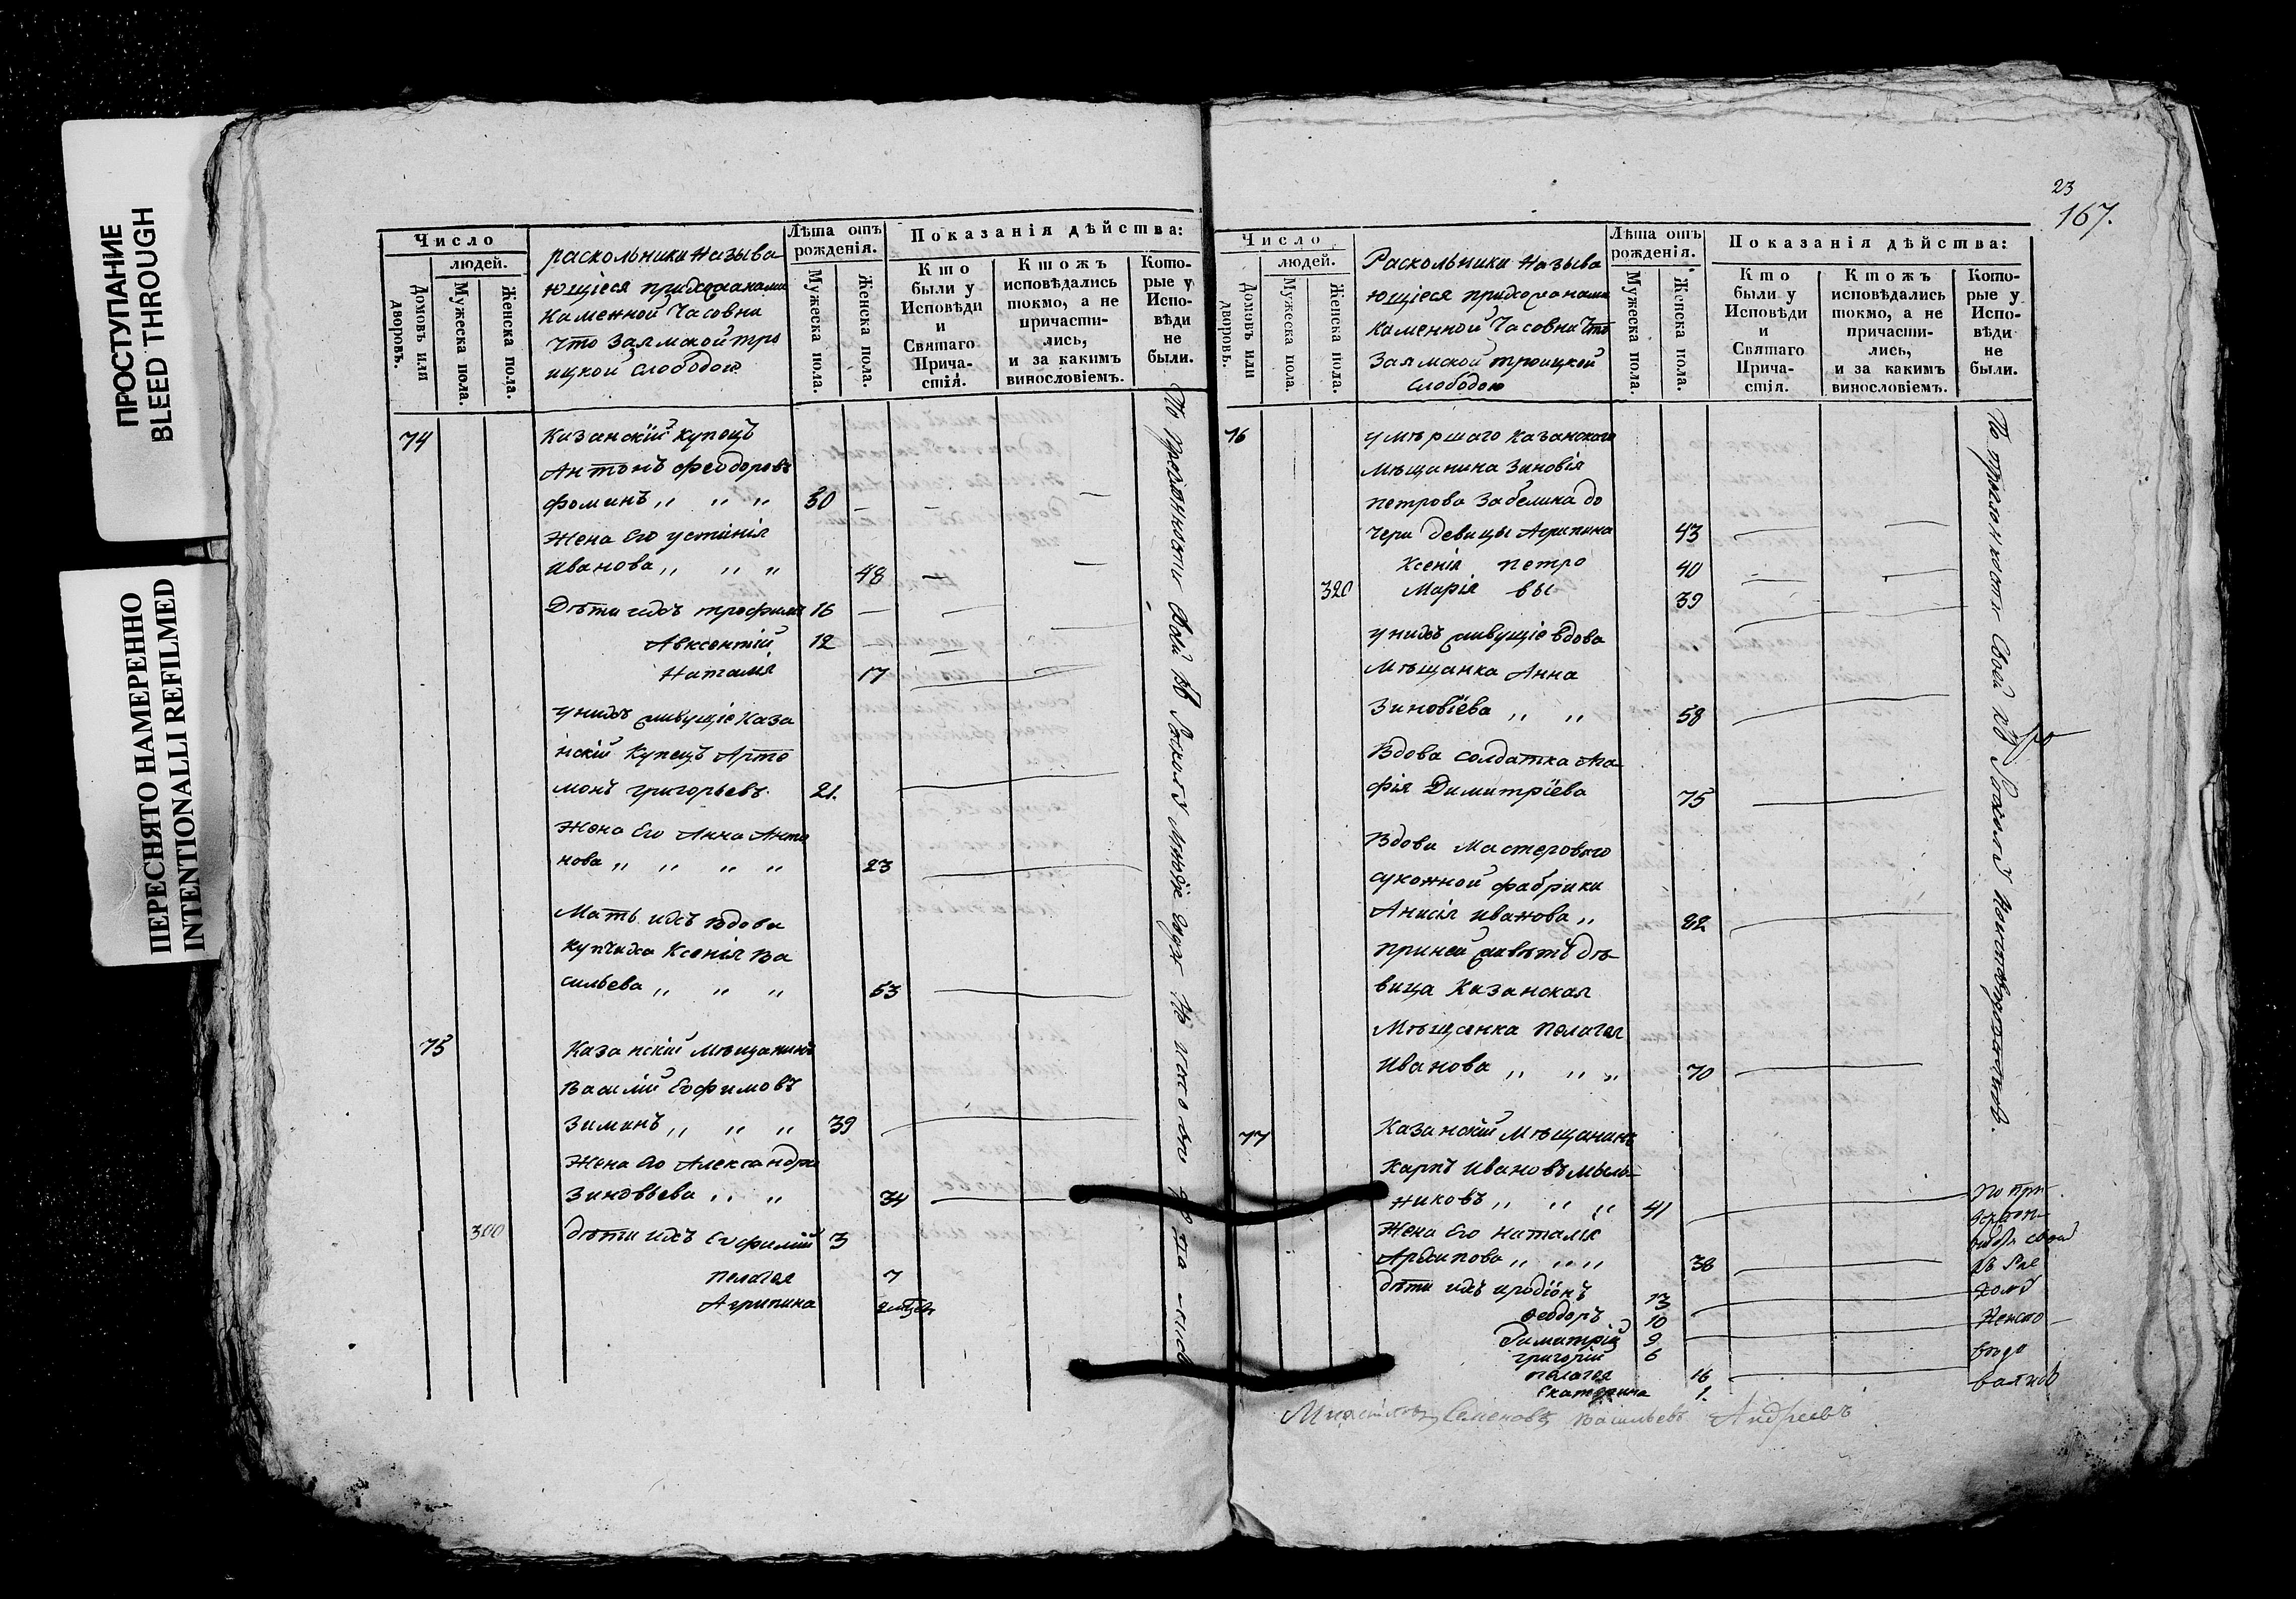 ПРОСТУПАНИЕ
BLEED THROUGH
ПЕРЕСНЯТО НАМЕРЕННО
INTENTIONALLI REFILMED
Число
людей.
Домовъ или дворовъ.
Мужеска пола.
Женска пола.
раскольники Называ
ющіеся прихожанами
Каменной Часовни
что Заямской тро
ицкой Слободою
Лѣта отъ рожденія.
Мужеска пола.
Женска пола.
Показанія дѣйства:
Кто были у Исповѣди и Святаго Прича-стія.
Ктожъ исповѣдались токмо, а не причасти-лись, и за какимъ винословіемъ.
Кото-рые у Испо-вѣди не были.
74 Казанскій купецъ
Антонъ Феодоровъ
Фоминъ 50
Жена Его устинія
Иванова 48
Дѣти ихъ трофимъ 16
Авксентій 12
Наталія 17
у нихъ живущіе Каза
нскій Купецъ Арто
монъ григорьевъ 21.
Жена Его Анна Анто
нова 23
Мать ихъ вдова
купчиха Ксенія Ва
сильева 53
75 Казанскій Мѣщанинъ
Василій Ефимовъ
Зиминъ 39
Жена Его Александра
Зиновьева 34
300 дѣти ихъ Евфимій 3
Пелагея 7
Агрипина
23
167.
Число
людей.
Домовъ или дворовъ.
Мужеска пола.
Женска пола.
Раскольники Называ
ющіеся прихожанами
Каменной Часовни что
Заямской троицкой
Слободою
Лѣта отъ рожденія.
Мужеска пола.
Женска пола.
Показанія дѣйства:
Кто были у Исповѣди и Святаго Прича-стія.
Ктожъ исповѣдались токмо, а не причасти-лись, и за какимъ винословіемъ.
Кото-рые у Испо-вѣди не были.
76 умѣршаго Казанского
Мѣщанина Зиновія
петрова Забелина до
чери девицы Агрипина 43
Ксенія петро 40
320 Марія вы 39
у нихъ живущіе вдова
Мѣщанка Анна
Зиновіева 58
Вдова солдатка Ага
фія Димитріева 75
Вдова Мастерового
суконной фабрики
Анисія Иванова 82
при ней живетъ дѣ
вица Казанская
Мѣщанка Пелагея
Иванова 70
77 Казанскій Мѣщанинъ
Карпъ Ивановъ Мыль
никовъ 41
Жена Его Наталія
Архипова 38
дѣти ихъ иродіонъ 13
Феодоръ 10
Димитрій 9
григорій 6
пелагея 16
Екатерина 1.
Семеновъ Васильевъ Андреевъ